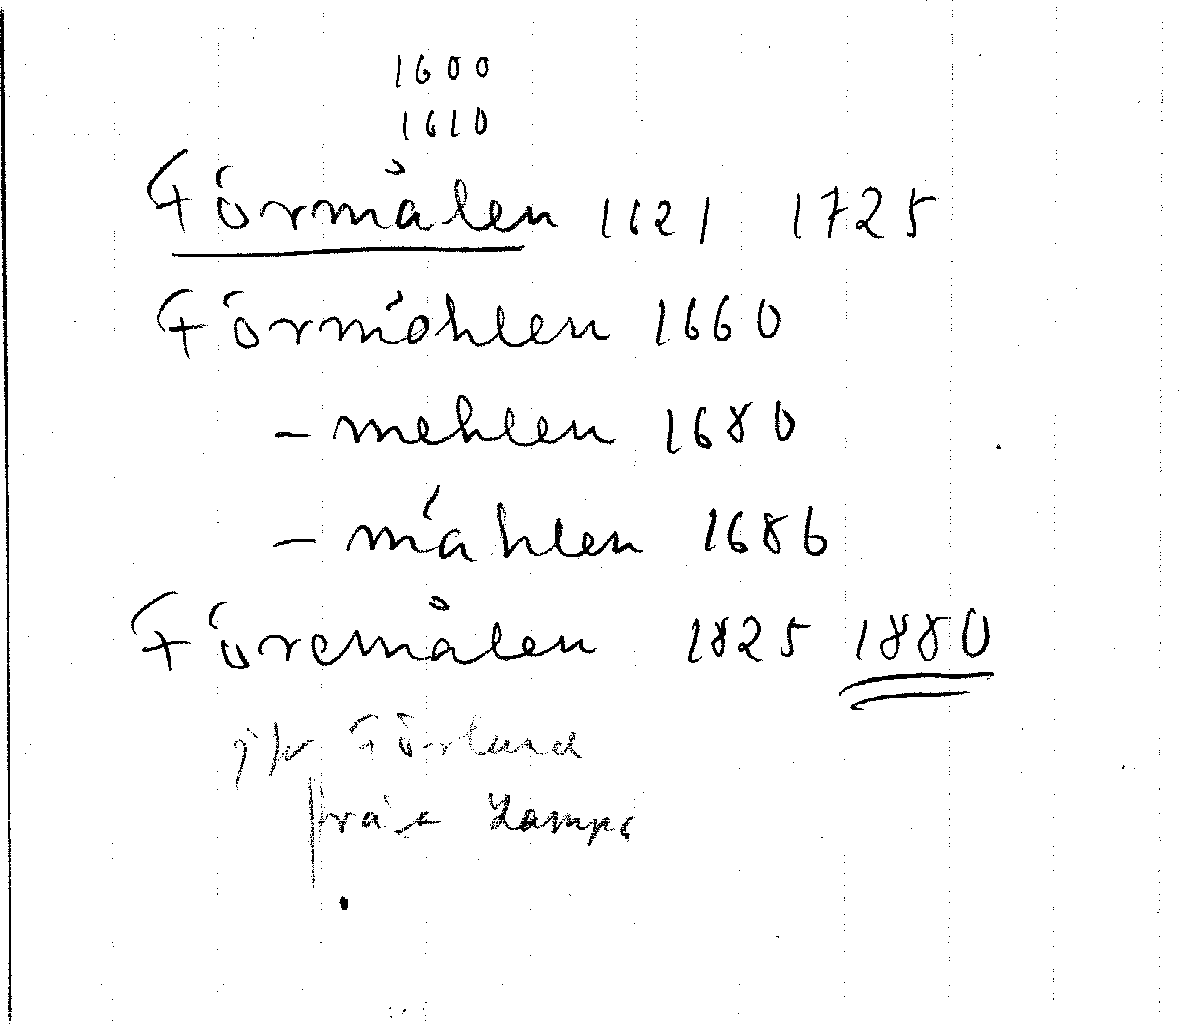 1600
1610
Förmålen 1621 1725
Förmöhlen 1660
- mehlen 1680
- måhlen 1686
Föremålen 1825 1880
jfr Förlund